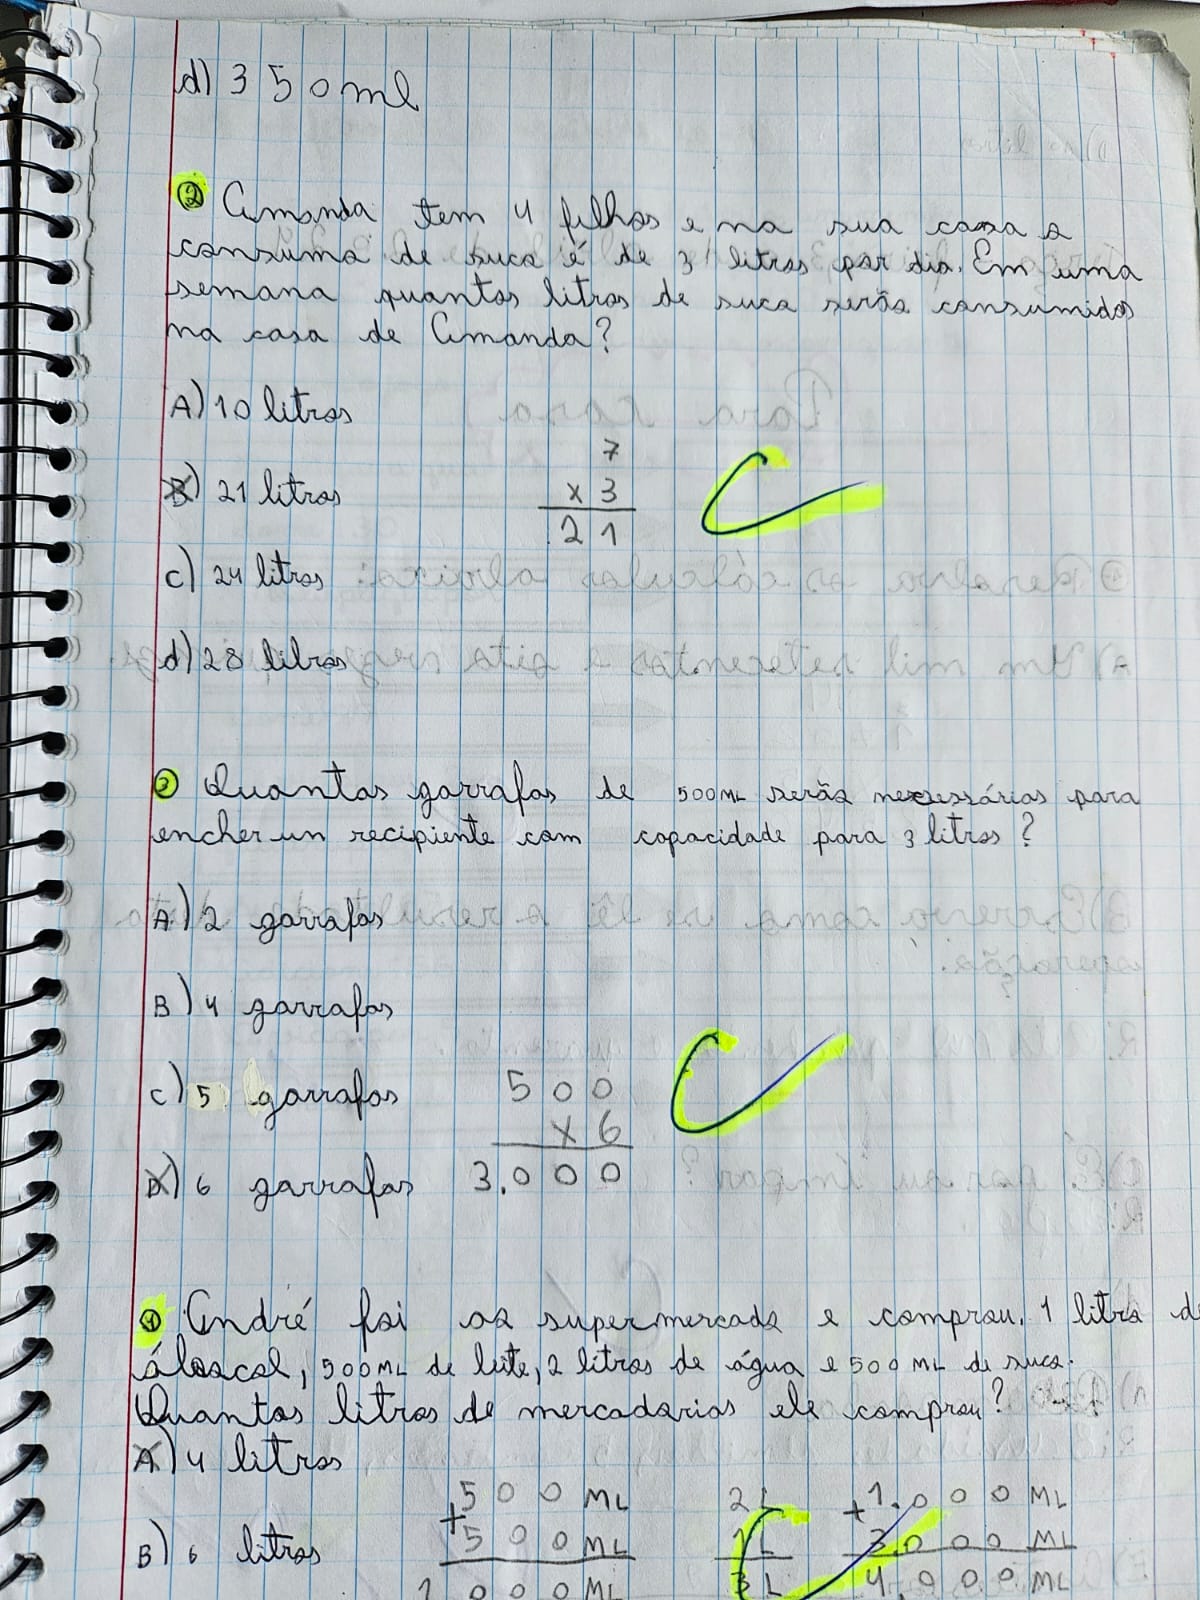 d) 350ml
② Amanda tem 4 filhos e na sua casa o
consumo de suco é de 3 litros por dia. Em uma
semana quantos litros de suco serão consumidos
na casa de Amanda?
A) 10 litros
7
B) 21 litros x 3
21
c) 24 litros
d) 28 litros
③ Quantas garrafas de 500ML serão necessárias para
encher un recipiente com capacidade para 3 litros?
A) 2 garrafas
B) 4 garrafas
c) 5 garrafas 500
x 6
D) 6 garrafas 3.000
④ André foi ao supermercado e comprou. 1 litro d
500ML de leite, 2 litros de água e 500 ML de suco.
Quantos litros de mercadorias ele comprou?
A) 4 litros
+500 ML 2L +1.000 ML
B) 6 litros 500 ML 1L 3.000 ML
1000 ML 3L 4.000 ML